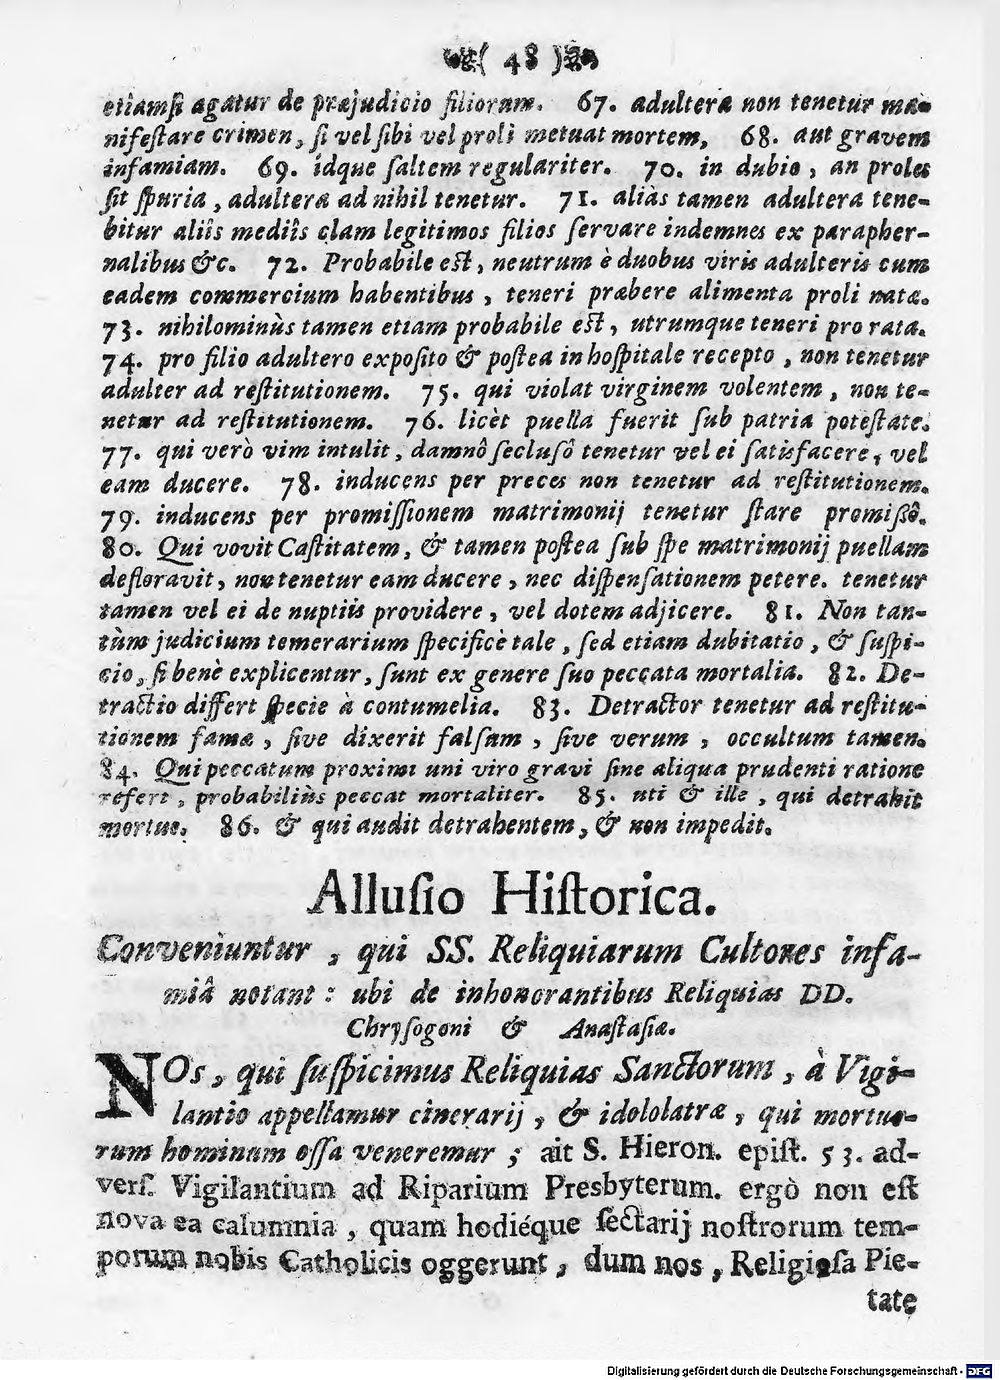 ( 48 )
etiamſi agatur de præjudicio filiorum. 67. adultera non tenetur ma-
nifeſtare crimen, ſi vel ſibi vel proli metuat mortem, 68. aut gravem
infamiam. 69. idque ſaltem regulariter. 70. in dubio, an proles
ſit ſpuria, adultera ad nihil tenetur. 71. aliàs tamen adultera tene-
bitur aliîs mediîs clam legitimos filios ſervare indemnes ex parapher-
nalibus &c. 72. Probabile eſt, neutrum è duobus viris adulteris cum
eadem commercium habentibus, teneri præbere alimenta proli natæ.
73. nihilominùs tamen etiam probabile eſt, utrumque teneri pro rata.
74. pro filio adultero expoſito & poſtea in hoſpitale recepto, non tenetur
adulter ad reſtitutionem. 75. qui violat virginem volentem, non te-
netur ad reſtitutionem. 76. licèt puella fuerit ſub patria poteſtate.
77. qui verò vim intulit, damnô ſecluſô tenetur vel ei ſatisfacere, vel
eam ducere. 78. inducens per preces non tenetur ad reſtitutionem.
79. inducens per promiſſionem matrimonij tenetur ſtare promißô.
80. Qui vovit Caſtitatem, & tamen poſtea ſub ſpe matrimonij puellam
defloravit, non tenetur eam ducere, nec diſpenſationem petere. tenetur
tamen vel ei de nuptiis providere, vel dotem adjicere. 81. Non tan-
tùm judicium temerarium ſpecificè tale, ſed etiam dubitatio, & ſuſpi-
cio, ſi benè explicentur, ſunt ex genere ſuo peccata mortalia. 82. De-
tractio differt ſpecie à contumelia. 83. Detractor tenetur ad reſtitu-
tionem famæ, ſive dixerit falſum, ſive verum, occultum tamen.
84. Qui peccatum proximi uni viro gravi ſine aliqua prudenti ratione
refert, probabiliùs peccat mortaliter. 85. uti & ille, qui detrahit
mortuo. 86. & qui audit detrahentem, & non impedit.
Alluſio Hiſtorica.
Conveniuntur, qui SS. Reliquiarum Cultores infa-
miâ notant: ubi de inhonorantibus Reliquias DD.
Chryſogoni & Anaſtaſiæ.
NOs, qui ſuſpicimus Reliquias Sanctorum, à Vigi-
lantio appellamur cinerarij, & idololatræ, qui mortuo-
rum hominum oſſa veneremur; ait S. Hieron. epiſt. 53. ad-
verſ. Vigilantium ad Riparium Presbyterum. ergò non eſt
nova ea calumnia, quam hodiéque ſectarij noſtrorum tem-
porum nobis Catholicis oggerunt, dum nos, Religioſa Pie-
tate
Digitalisierung gefördert durch die Deutsche Forschungsgemeinschaft - DFG